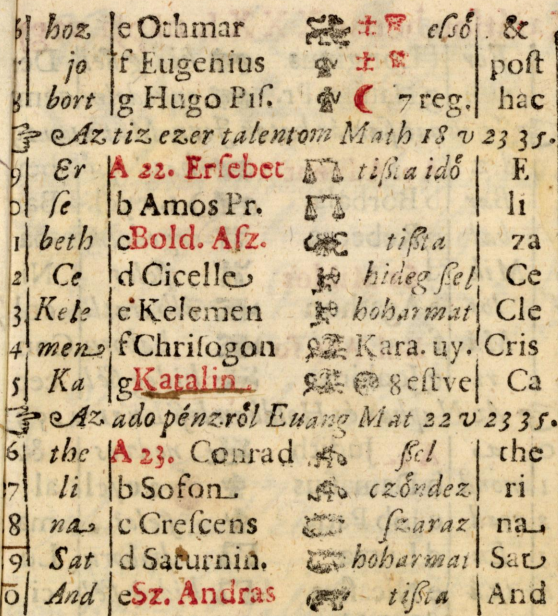 6 hoz e Othmar elsö &
7 jo f Eugenius post
8 bort g Hugo Pis. 7 reg. hac
Az tiz ezer talentom Math 18 v 23 35.
9 Er A 22. Ersebet tißta idö E
0 se b Amos Pr. li
1 beth c Bold. Asz. tißta za
2 Ce d Cicelle hideg ßel Ce
3 Kele e Kelemen hoharmat Cle
4 men f Chrisogon Kara. uy. Cris
5 Ka g Katalin. 8 estve Ca
Az ado pénzröl Euang Mat 22 v 23 35.
6 the A 23. Conrad ßel the
7 li b Sofon czöndez ri
8 na c Crescens szaraz na
9 Sat d Saturnin. hoharmat Sat
0 And e Sz. Andras tißta And